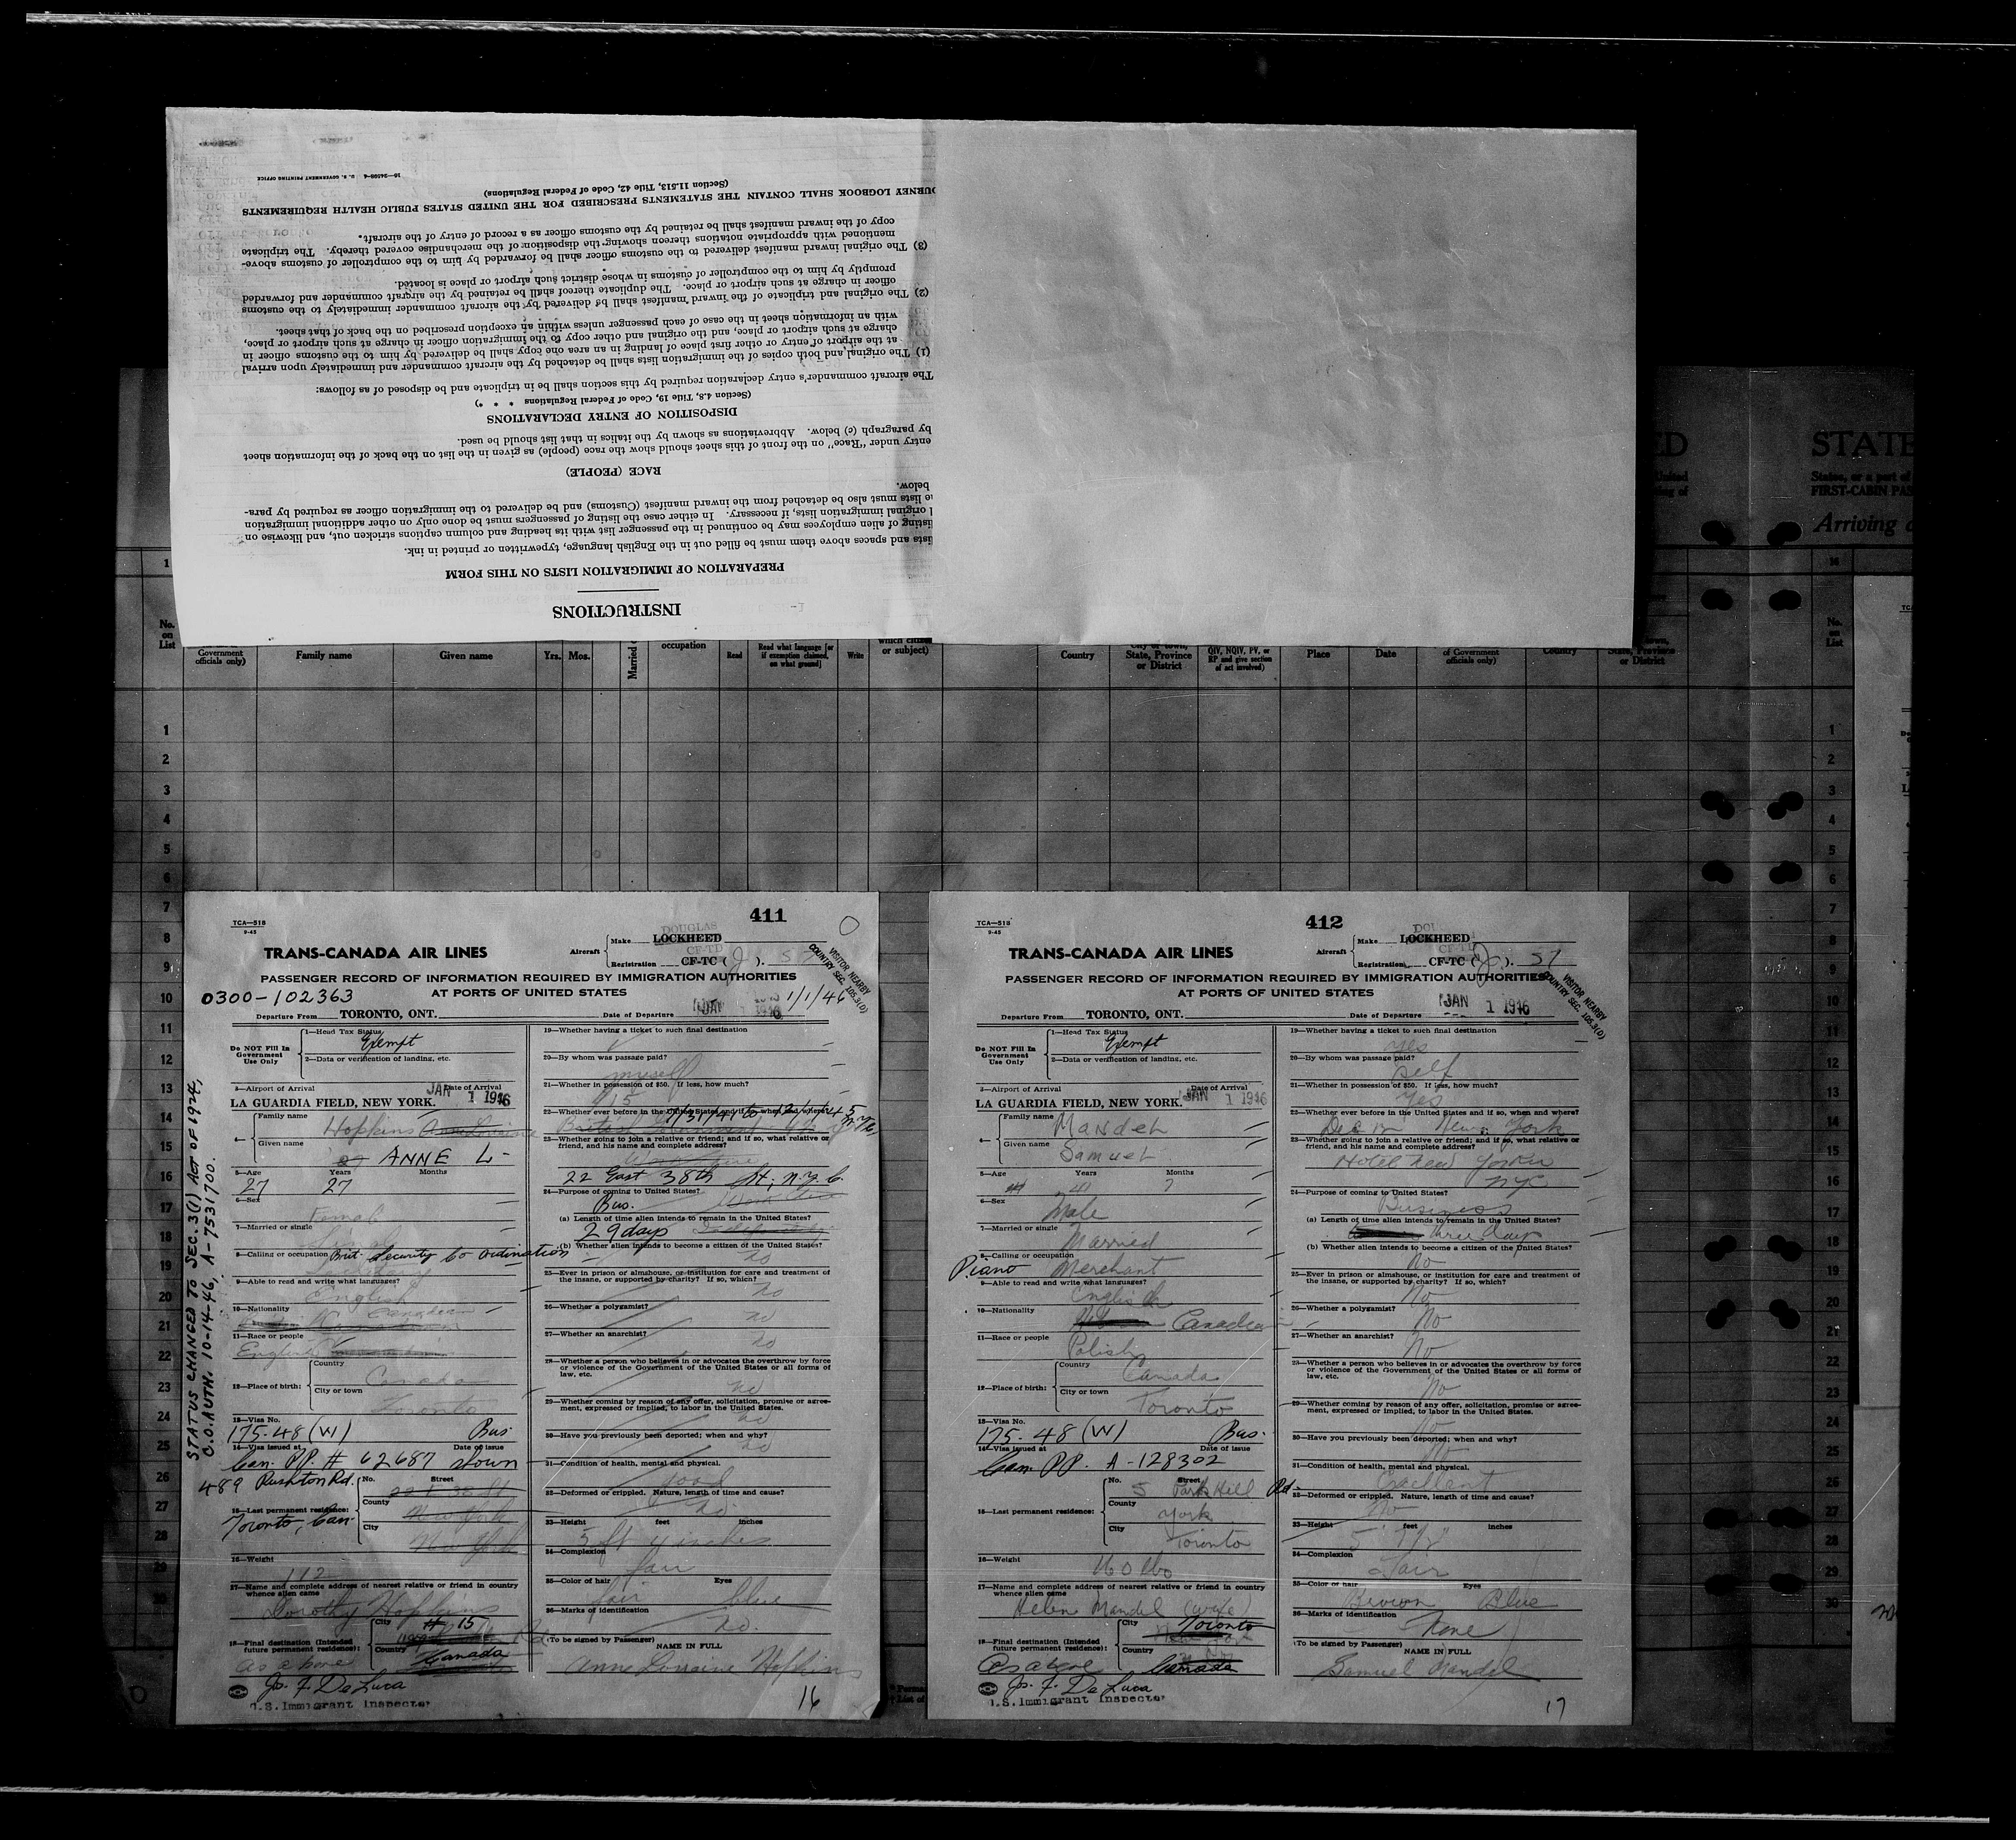 INSTRUCTIONS
PREPARATION OF IMMIGRATION LISTS ON THIS FORM
and spaces above them must be filled out in the English language, typewritten or printed in ink.
of alien employees may be continued in the passenger list with its heading and column captions stricken out, and likewise on
original immigration lists, if necessary. In either case the listing of passengers must be done only on other additional immigration
lists must also be detached from the inward manifest (Customs) and be delivered to the immigration officer as required by para-
below.
RACE (PEOPLE)
entry under "Race" on the front of this sheet should show the race (people) as given in the list on the back of the information sheet
by paragraph (c) below. Abbreviations as shown by the italics in that list should be used.
DISPOSITION OF ENTRY DECLARATIONS
(Section 4.8, Title 19, Code of Federal Regulations * * *)
The aircraft commander's entry declaration required by this section shall be in triplicate and be disposed of as follows:
(1) The original and both copies of the immigration lists shall be detached by the aircraft commander and immediately upon arrival
at the airport of entry or other first place of landing in an area one copy shall be delivered by him to the customs officer in
charge at such airport or place, and the original and other copy to the immigration officer in charge at such airport or place,
with an information sheet in the case of each passenger unless within an exception prescribed on the back of that sheet.
(2) The original and triplicate of the inward manifest shall be delivered by the aircraft commander immediately to the customs
officer in charge at such airport or place. The duplicate thereof shall be retained by the aircraft commander and forwarded
promptly by him to the comptroller of customs in whose district such airport or place is located.
(3) The original inward manifest delivered to the customs officer shall be forwarded by him to the comptroller of customs above-
mentioned with appropriate notations thereon showing the disposition of the merchandise covered thereby. The triplicate
copy of the inward manifest shall be retained by the customs officer as a record of entry of the aircraft.
URNEY LOGBOOK SHALL CONTAIN THE STATEMENTS PRESCRIBED FOR THE UNITED STATES PUBLIC HEALTH REQUIREMENTS
(Section 11.513, Title 42, Code of Federal Regulations)
U. S. GOVERNMENT PRINTING OFFICE
STATE
States, or a part of
FIRST-CABIN PAS
Arriving
No. on List
Government officials only)
Family name
Given name
Yrs. Mos.
Married
occupation
Read
Read what language [or if exemption claimed, on what ground]
Write
or subject)
Country
State, Province or District
QIV, NQIV, PV, or RP and give section of act involved)
Place
Date
of Government officials only)
Country
or District
No. on List
411
TCA—518
9-45
TRANS-CANADA AIR LINES
Aircraft
Make LOCKHEED
DOUGLAS
Registration CF-TC ( ).
PASSENGER RECORD OF INFORMATION REQUIRED BY IMMIGRATION AUTHORITIES
AT PORTS OF UNITED STATES
VISITOR NEARBY
COUNTRY SEC. 105.3(0)
0300-102363
Departure From TORONTO, ONT.
Date of Departure JAN 1 1946 1/1/46
Do NOT Fill In Government Use Only
1—Head Tax Status
Exempt
2—Data or verification of landing, etc.
3—Airport of Arrival
Date of Arrival
LA GUARDIA FIELD, NEW YORK.
JAN 1 1946
4—
Family name Hopkins
Given name ANNE L-
5—Age Years Months
27 27
6—Sex
Female
7—Married or single
Single
8—Calling or occupation Brit. Security Co ordination
9—Able to read and write what languages?
English
10—Nationality
Canadian
11—Race or people
English
12—Place of birth:
Country Canada
City or town Toronto
13—Visa No.
175-48 (W) Bus.
14—Visa issued at Date of issue
Can. PP. # 62687 shown
489 Rushton Rd.
Toronto, Can.
15—Last permanent residence:
No. Street
County
New York
City
New York
16—Weight
112
17—Name and complete address of nearest relative or friend in country
whence alien came
Dorothy Hopkins
18—Final destination (Intended
future permanent residence):
as above
City # 15
Country Canada
Jo. F. De Luca
U.S. Immigrant Inspector
19—Whether having a ticket to such final destination
20—By whom was passage paid?
myself
21—Whether in possession of $50. If less, how much?
15
22—Whether ever before in the United States and if so, when and where?
23—Whether going to join a relative or friend; and if so, what relative or
friend, and his name and complete address?
22 East 38th St; N.Y.C.
24—Purpose of coming to United States?
Bus.
(a) Length of time alien intends to remain in the United States?
29 days
(b) Whether alien intends to become a citizen of the United States?
no
25—Ever in prison or almshouse, or institution for care and treatment of
the insane, or supported by charity? If so, which?
no
26—Whether a polygamist?
no
27—Whether an anarchist?
no
28—Whether a person who believes in or advocates the overthrow by force
or violence of the Government of the United States or all forms of
law, etc.
no
29—Whether coming by reason of any offer, solicitation, promise or agree-
ment, expressed or implied, to labor in the United States.
no
30—Have you previously been deported; when and why?
no
31—Condition of health, mental and physical.
good
32—Deformed or crippled. Nature, length of time and cause?
no
33—Height feet inches
5 ft 4 inches
34—Complexion
fair
35—Color of hair Eyes
fair blue
36—Marks of identification
no.
(To be signed by Passenger)
NAME IN FULL
Anne Lorraine Hopkins
16
STATUS CHANGED TO SEC. 3(1) ACT OF 1924,
C.O. AUTH. 10-14-46, A-7531700.
412
TCA—518
9-45
TRANS-CANADA AIR LINES
Aircraft
Make LOCKHEED
Registration CF-TC ( ). 57
PASSENGER RECORD OF INFORMATION REQUIRED BY IMMIGRATION AUTHORITIES
AT PORTS OF UNITED STATES
VISITOR NEARBY
COUNTRY SEC. 105.3(0)
Departure From TORONTO, ONT.
Date of Departure JAN 1 1946
Do NOT Fill In Government Use Only
1—Head Tax Status
Exempt
2—Data or verification of landing, etc.
3—Airport of Arrival
Date of Arrival
LA GUARDIA FIELD, NEW YORK.
JAN 1 1946
4—
Family name Mandel
Given name Samuel
5—Age Years Months
41 7
6—Sex
Male
7—Married or single
Married
8—Calling or occupation
Piano Merchant
9—Able to read and write what languages?
English
10—Nationality
Canadian
11—Race or people
Polish
12—Place of birth:
Country Canada
City or town Toronto
13—Visa No.
175-48 (W) Bus.
14—Visa issued at Date of issue
Can PP. A-128302
15—Last permanent residence:
No. Street
5 Park Hill Rd.
County
York
City
Toronto
16—Weight
160 lbs
17—Name and complete address of nearest relative or friend in country
whence alien came
Helen Mandel (wife)
18—Final destination (Intended
future permanent residence):
As above
City Toronto
Country Canada
Jo. F. De Luca
U.S. Immigrant Inspector
19—Whether having a ticket to such final destination
yes
20—By whom was passage paid?
self
21—Whether in possession of $50. If less, how much?
yes
22—Whether ever before in the United States and if so, when and where?
Dec 12 New York
23—Whether going to join a relative or friend; and if so, what relative or
friend, and his name and complete address?
Hotel New Yorker
NYC
24—Purpose of coming to United States?
Business
(a) Length of time alien intends to remain in the United States?
three days
(b) Whether alien intends to become a citizen of the United States?
No
25—Ever in prison or almshouse, or institution for care and treatment of
the insane, or supported by charity? If so, which?
No
26—Whether a polygamist?
No
27—Whether an anarchist?
No
28—Whether a person who believes in or advocates the overthrow by force
or violence of the Government of the United States or all forms of
law, etc.
No
29—Whether coming by reason of any offer, solicitation, promise or agree-
ment, expressed or implied, to labor in the United States.
No
30—Have you previously been deported; when and why?
No
31—Condition of health, mental and physical.
32—Deformed or crippled. Nature, length of time and cause?
No
33—Height feet inches
34—Complexion
Fair
35—Color of hair Eyes
Brown Blue
36—Marks of identification
None
(To be signed by Passenger)
NAME IN FULL
Samuel Mandel
17